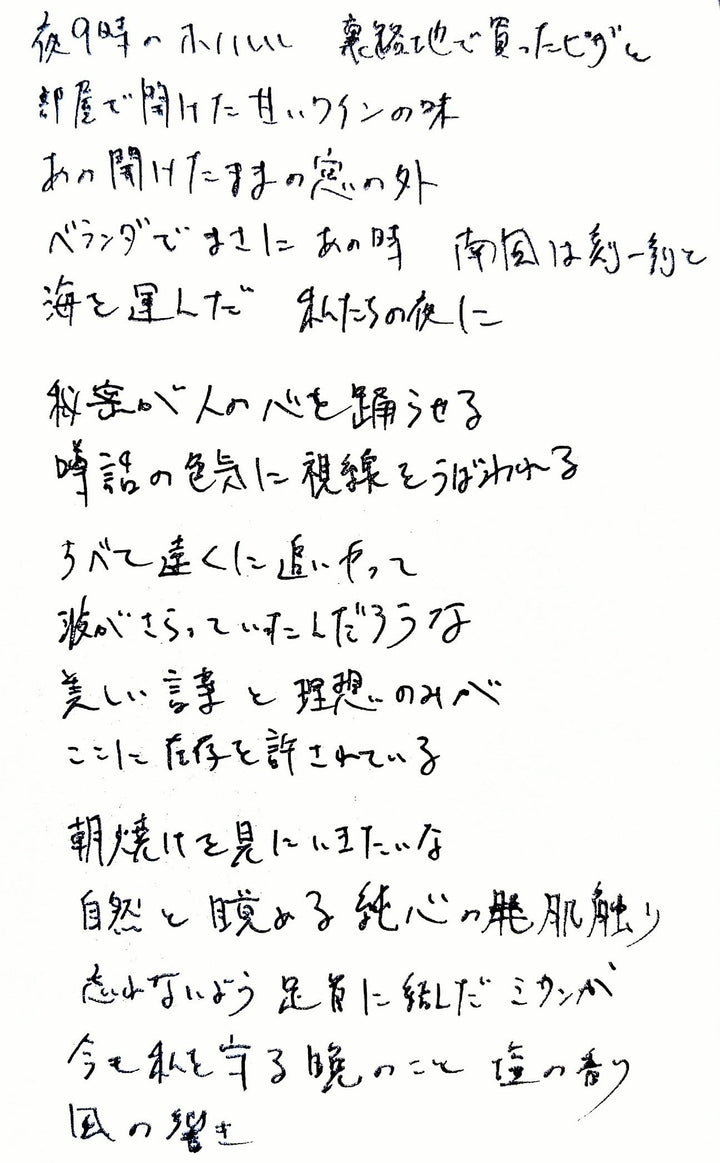 夜9時のホノルル 裏路地で買ったピザと
部屋で開けた甘いワインの味
あの開けたままの窓の外
ベランダでまさにあの時 南風は刻一刻と
海を運んだ 私たちの夜に
秘密が人の心を踊らせる
噂話の色気に視線をうばわれる
すべて遠くに追いやって
波がさらっていたんだろうな
美しい言葉と理想のみが
ここに存在を許されている
朝焼けを見にいきたいな
自然と目覚める純心の肌触り
忘れないよう足首に結んだミサンガ
今も私を守る晩のこと 塩の香り
風の響き